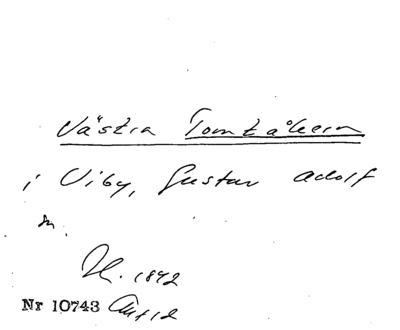 Västra Tomtåkern
i Viby, Gustav Adolf
sn.
H. 1842
Nr 10743